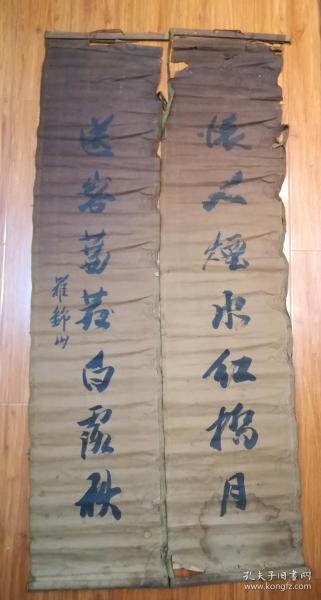 懷人煙水紅橋月
送客蒹葭白露秋
山
孔夫子旧书网
www.kongfz.com